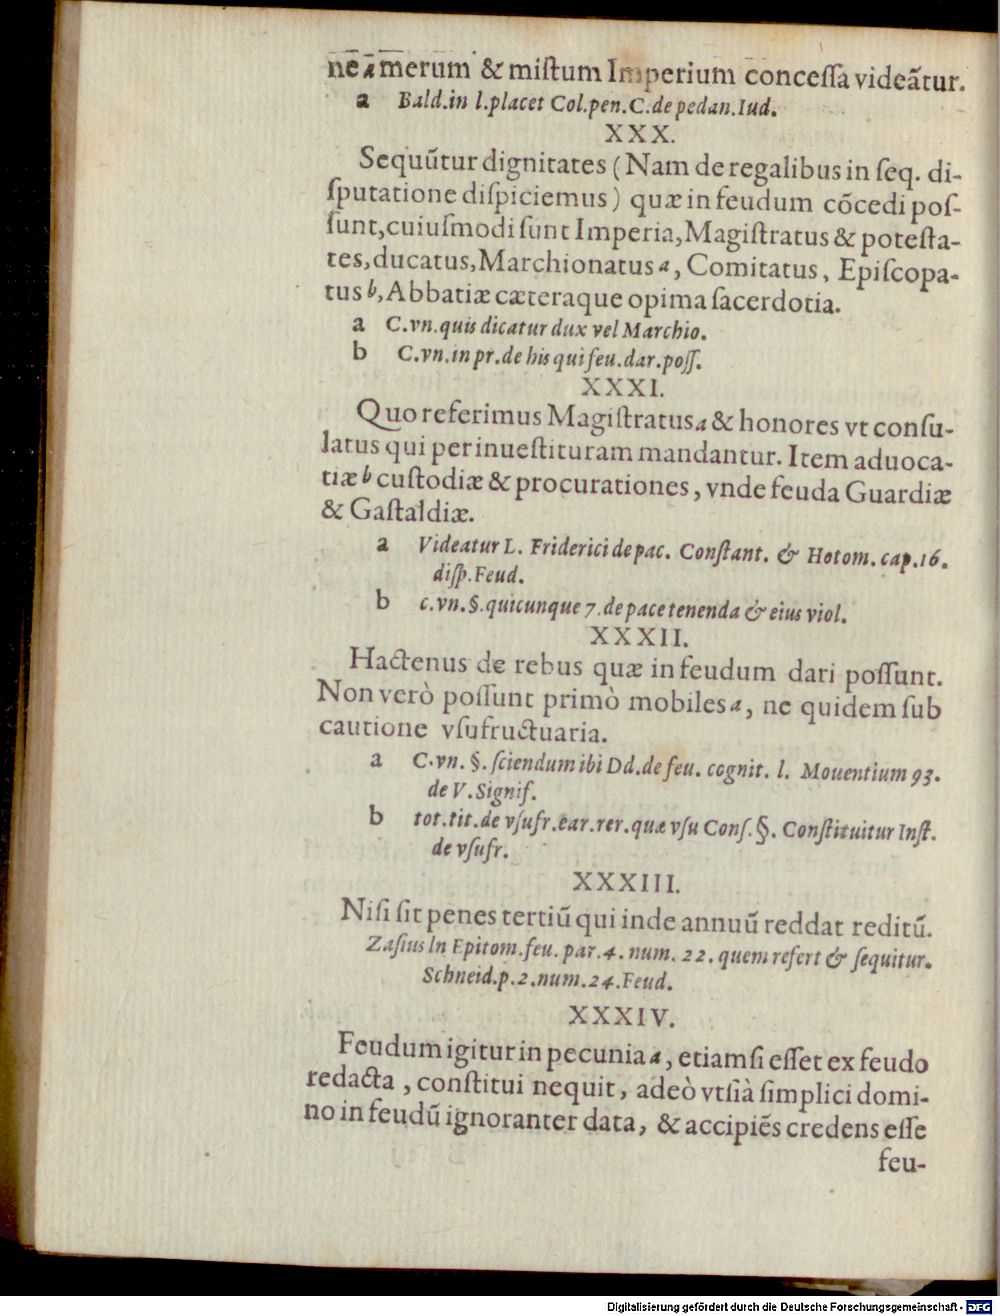 ne a merum & miſtum Imperium conceſſa videātur.
a Bald.in l.placet Col.pen.C.de pedan.Iud.
XXX.
Sequūtur dignitates (Nam de regalibus in ſeq. di-
ſputatione diſpiciemus) quæ in feudum cōcedi poſ-
ſunt,cuiuſmodi ſunt Imperia,Magiſtratus & poteſta-
tes,ducatus,Marchionatus a, Comitatus, Epiſcopa-
tus b,Abbatiæ cæteraque opima ſacerdotia.
a C.vn.quis dicatur dux vel Marchio.
b C.vn.in pr.de his qui feu.dar.poſſ.
XXXI.
Quo referimus Magiſtratus a & honores vt conſu-
latus qui per inueſtituram mandantur. Item aduoca-
tiæ b cuſtodiæ & procurationes, vnde feuda Guardiæ
& Gaſtaldiæ.
a Videatur L. Friderici de pac. Conſtant. & Hotom. cap.16.
diſp.Feud.
b c.vn.§.quicunque 7.de pace tenenda & eius viol.
XXXII.
Hactenus de rebus quæ in feudum dari poſſunt.
Non verò poſſunt primò mobiles a, ne quidem ſub
cautione vſufructuaria.
a C.vn. §. ſciendum ibi Dd.de feu. cognit. l. Mouentium 93.
de V.Signif.
b tot.tit.de vſufr.ear.rer.quæ vſu Conſ.§. Conſtituitur Inſt.
de vſufr.
XXXIII.
Niſi ſit penes tertiū qui inde annuū reddat reditū.
Zaſius In Epitom.feu. par.4. num. 22. quem refert & ſequitur.
Schneid.p.2.num.24.Feud.
XXXIV.
Feudum igitur in pecunia a, etiamſi eſſet ex feudo
redacta, conſtitui nequit, adeò vt ſi à ſimplici domi-
no in feudū ignoranter data, & accipiēs credens eſſe
feu-
Digitalisierung gefördert durch die Deutsche Forschungsgemeinschaft - DFG